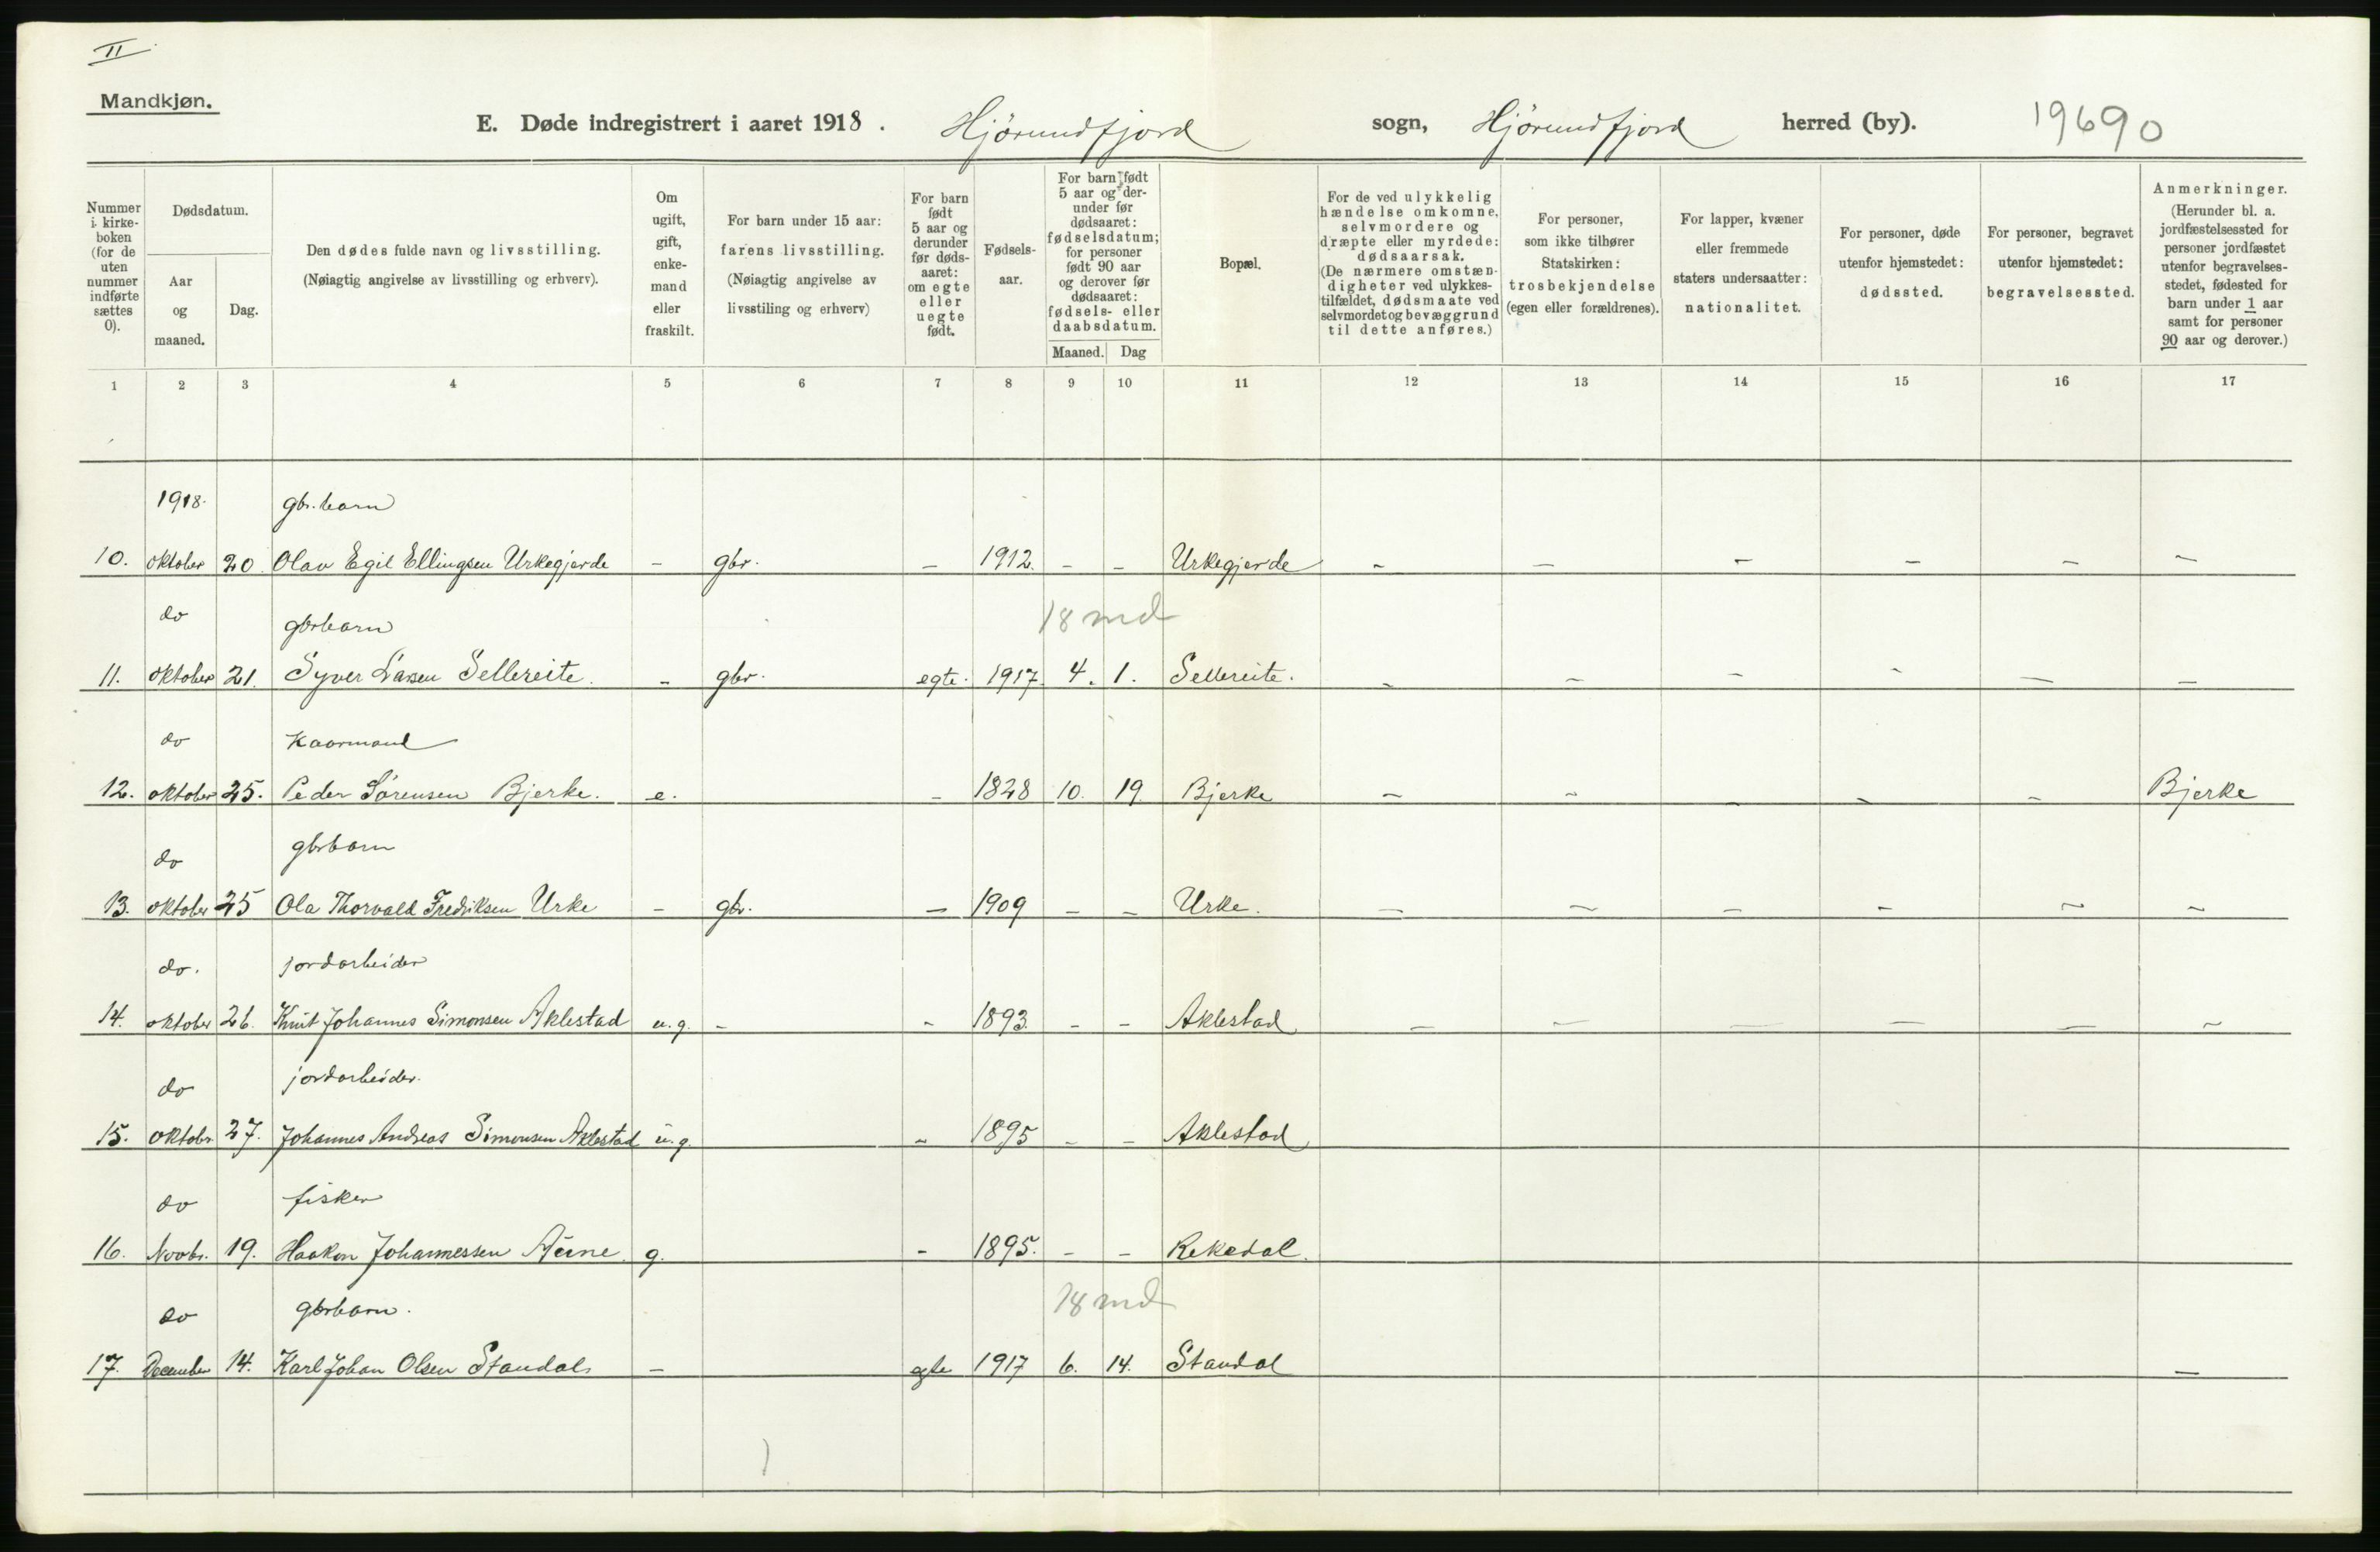 II
Mandkjøn.
E. Døde indregistrert i aaret 1918. Hjörundfjord sogn, Hjörundfjord herred (by). 19690
Nummer i kirkeboken (for de uten nummer indførte sættes 0).
Dødsdatum.
Aar og maaned.
Dag.
Den dødes fulde navn og livsstilling.
(Nøiagtig angivelse av livsstilling og erhverv).
Om ugift, gift, enkemand eller fraskilt.
For barn under 15 aar: farens livsstilling.
(Nøiagtig angivelse av livsstiling og erhverv)
For barn født 5 aar og derunder før dødsaaret: om egte eller uegte født.
Fødselsaar.
For barn født 5 aar og derunder før dødsaaret: fødselsdatum; for personer født 90 aar og derover før dødsaaret: fødsels- eller daabsdatum.
Maaned. Dag
Bopæl.
For de ved ulykkelig hændelse omkomne, selvmordere og dræpte eller myrdede: dødsaarsak.
(De nærmere omstændigheter ved ulykkestilfældet, dødsmaate ved selvmordet og bevæggrund til dette anføres.)
For personer, som ikke tilhører Statskirken: trosbekjendelse (egen eller forældrenes).
For lapper, kvæner eller fremmede staters undersaatter: nationalitet.
For personer, døde utenfor hjemstedet: dødssted.
For personer, begravet utenfor hjemstedet: begravelsessted.
Anmerkninger.
(Herunder bl. a. jordfæstelsessted for personer jordfæstet utenfor begravelsesstedet, fødested for barn under 1 aar samt for personer 90 aar og derover.)
1 2 3 4 5 6 7 8 9 10 11 12 13 14 15 16 17
1918. gbr. barn
10. oktober 20. Olav Egil Ellingsen Urkegjerde - gbr. - 1912. - - Urkegjerde - - - - - -
do gbrbarn 18 md
11. oktober 21. Syver Larsen Sellereite. - gbr. egte. 1917. 4. 1. Sellereite. - - - - - -
do Kaarmand
12. oktober 25. Peder Sörensen Bjerke. e. - 1828 10. 19. Bjerke - - - - - Bjerke
do gbrbarn
13. oktober 25 Ola Thorvald Fredriksen Urke - gbr. - 1909 - - Urke. - - - - - -
do. jordarbeider
14. oktober 26. Knut Johannes Simonsen Aklestad u.g. - - 1893. - - Aklestad - - - - - -
do jordarbeider.
15. oktobr. 27. Johannes Andreas Simonsen Aklestad u.g. - 1895 - - Aklestad
do fisker
16. Novbr. 19. Haakon Johannessen g. - 1895. - - Rekedal.
do gbrbarn. 18 md
17. December 14. Karl Johan Olsen Standal - egte 1917 6. 14. Standal -